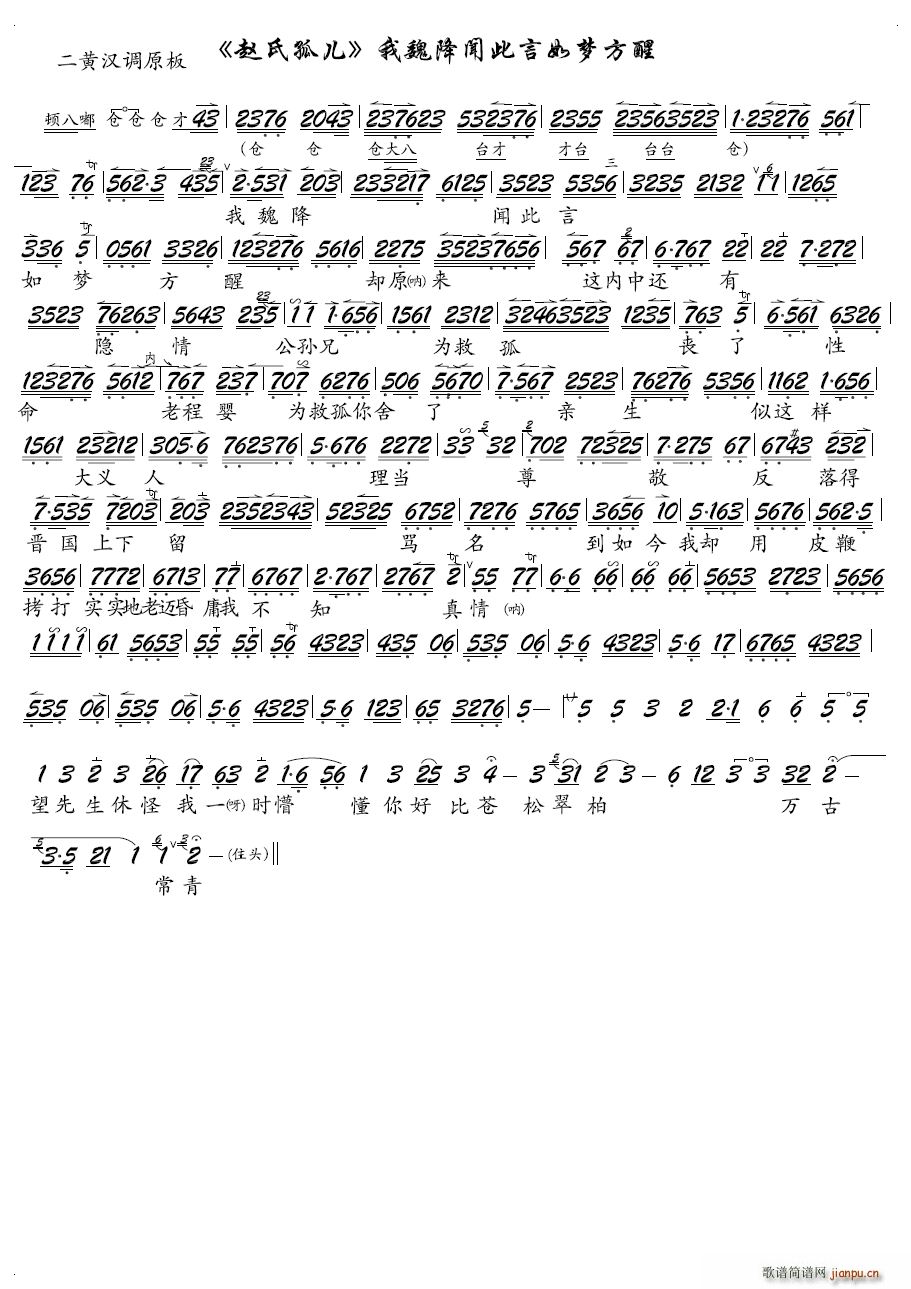 《赵氏孤儿》我魏降闻此言如梦方醒
二黄汉调原板
顿八嘟 仓 仓 仓 才 43 | 2376 2043 | 237623 532376 | 2355 23563523 | 1·23276 561 |
(仓 仓 仓大八 台才 才台 台台 仓)
123 76 | 562·3 435 | 2·531 203 | 233217 6125 | 3523 5356 | 3235 2132 11 | 1265
我 魏 降 闻 此 言
336 5 | 0561 3326 | 123276 5616 | 2275 35237656 | 567 67 | 6·767 22 | 22 7·272 |
如 梦 方 醒 却原(呐)来 这内中还 有
3523 76263 | 5643 235 | 11 1·656 | 1561 2312 | 32463523 1235 | 763 5 | 6·561 6326 |
隐 情 公孙兄 为救 孤 丧 了 性
123276 5612 | 767 237 | 707 6276 | 506 5670 | 7·567 2523 | 76276 5356 | 1162 1·656 |
内
命 老程 婴 为救孤你舍 了 亲 生 似这 样
1561 23212 | 305·6 762376 | 5·676 2272 | 33 32 | 702 72325 | 7·275 67 | 6743 232 |
大义 人 理当 尊 敬 反 落得
7·535 7203 | 203 2352343 | 52325 6752 | 7276 5765 | 3656 10 | 5·163 5676 | 562·5 |
晋 国 上下 留 骂 名 到 如 今 我却 用 皮 鞭
3656 | 7772 | 6713 | 77 | 6767 | 2·767 | 2767 2 | 55 77 | 6·6 66 | 66 66 | 5653 2723 | 5656
拷 打 实实地老迈昏 庸我 不 知 真 情 (呐)
1111 | 61 5653 | 55 55 | 56 4323 | 435 06 | 535 06 | 5·6 4323 | 5·6 17 | 6765 4323 |
535 06 | 535 06 | 5·6 4323 | 5·6 123 | 65 3276 | 5— | 5 5 3 2 2·1 6 6 5 5
1 3 2 3 26 17 63 2 1·6 56 1 3 25 3 4— 5 31 2 3— 6 12 3 3 32 2—
望先生休怪 我一(呀)时懵 懂 你 好 比 苍 松 翠 柏 万 古
3·5 21 1 1 2 —(住头)
常 青
歌谱简谱网 jianpu.cn